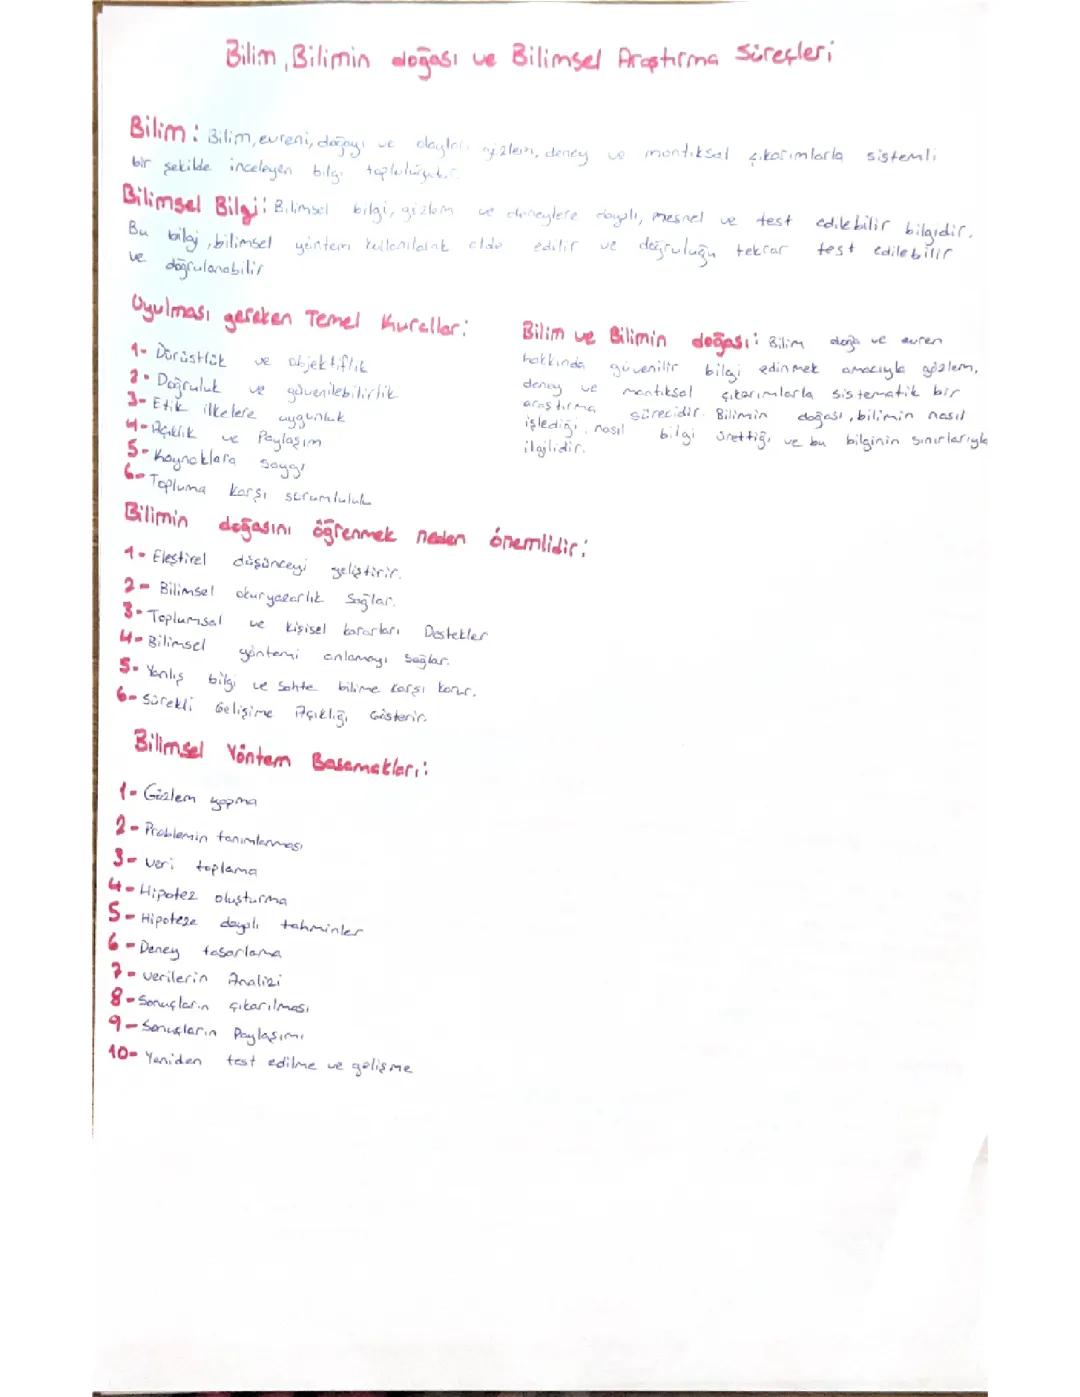 Bilim, Bilimin doğası ve Bilimsel Araştırma Süreçleri
Bilim: Bilim, evreni, doğayı ve olayları gözlem, deney ve mantıksal çıkarımlarla sistemli
bir şekilde inceleyen bilgi topluluğudur.
Bilimsel Bilgi: Bilimsel bilgi, gözlem ve deneylere dayalı, nesnel ve test edilebilir bilgidir.
Bu bilgi, bilimsel yöntem kullanılarak elde edilir ve doğruluğu tekrar test edilebilir
ve doğrulanabilir
Uyulması gereken Temel Kurallar:
1- Dürüstlük ve objektiflik
2- Doğruluk ve güvenilebilirlik
3- Etik ilkelere uygunluk
4- Açıklık ve Paylaşım
5- Kaynaklara saygı
6- Topluma karşı sorumluluk
Bilim ve Bilimin doğası: Bilim doğa ve evren
hakkında güvenilir bilgi edinmek amacıyla gözlem,
deney ve mantıksal çıkarımlarla sistematik bir
araştırma sürecidir. Bilimin doğası, bilimin nasıl
işlediği, nasıl bilgi ürettiği ve bu bilginin sınırlarıyla
ilgilidir.
Bilimin doğasını öğrenmek neden önemlidir:
1- Eleştirel düşünceyi geliştirir.
2- Bilimsel okuryazarlık Sağlar.
3- Toplumsal ve kişisel kararları Destekler
4- Bilimsel yöntemi anlamayı sağlar.
5- Yanlış bilgi ve Sahte bilime karşı korur.
6- Sürekli Gelişime Açıklığı Gösterir.
Bilimsel Yöntem Basamakları:
1- Gözlem yapma
2- Problemin tanımlanması
3- Veri toplama
4- Hipotez oluşturma
5- Hipoteze dayalı tahminler
6- Deney tasarlama
7- Verilerin Analizi
8- Sonuçların çıkarılması
9- Sonuçların Paylaşımı
10- Yeniden test edilme ve gelişme